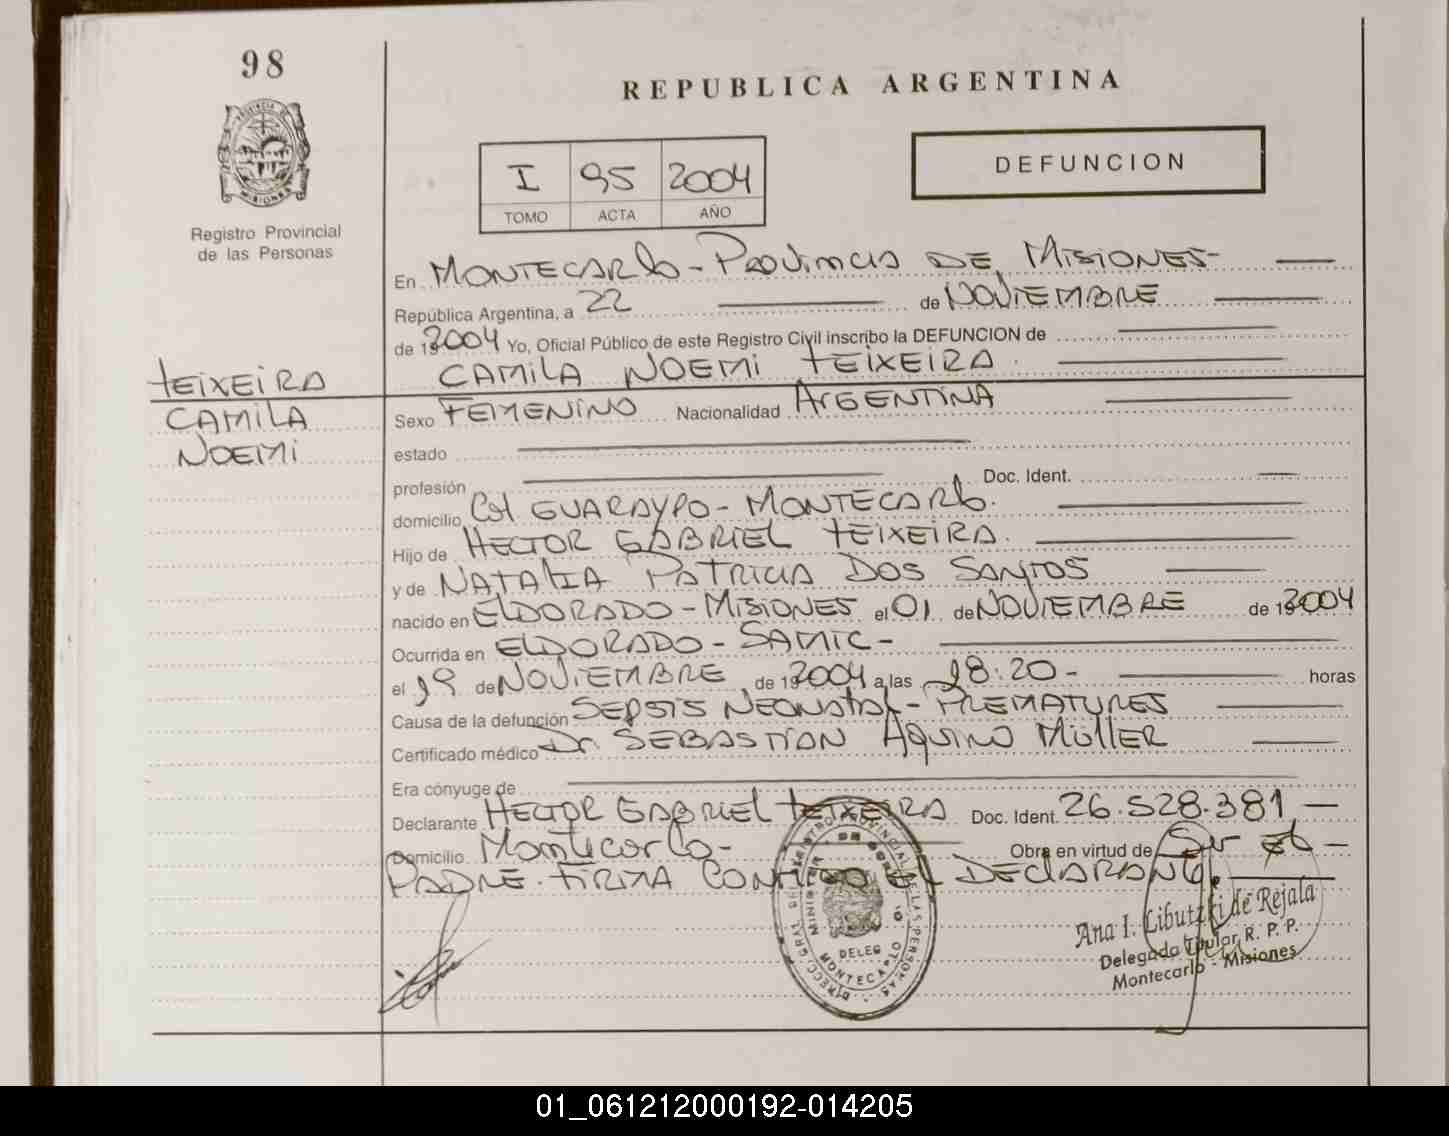 98
REPUBLICA ARGENTINA
PROVINCIA DE
MISIONES
Registro Provincial
de las Personas
I 95 2004
TOMO ACTA AÑO
DEFUNCION
En MONTECARLO - PROVINCIA DE MISIONES -
República Argentina, a 22 de NOVIEMBRE
de 2004 Yo, Oficial Público de este Registro Civil inscribo la DEFUNCION de
CAMILA NOEMI TEIXEIRA
TEIXEIRA
CAMILA
NOEMI
Sexo FEMENINO Nacionalidad ARGENTINA
estado
profesión Doc. Ident.
domicilio Col GUARAYPO - MONTECARLO.
Hijo de HECTOR GABRIEL TEIXEIRA.
y de NATALIA PATRICIA DOS SANTOS
nacido en ELDORADO - MISIONES el 01 de NOVIEMBRE de 2004
Ocurrida en ELDORADO - SAMIC -
el 19 de NOVIEMBRE de 2004 a las 18:20 - horas
Causa de la defunción SEPSIS NEONATAL - PREMATURES
Certificado médico Dr. SEBASTIAN AQUINO MÜLLER
Era cónyuge de
Declarante HECTOR GABRIEL TEIXEIRA Doc. Ident. 26.528.381 -
Domicilio Montecarlo - Obra en virtud de Ser el -
PADRE. FIRMA CONMIGO EL DECLARANTE.
DIRECC. GRAL. DEL REGISTRO PROVINCIAL DE LAS PERSONAS
DELEG
MONTECARLO
Ana I. Libutzki de Rejala
Delegada Titular R. P. P.
Montecarlo - Misiones
01_061212000192-014205